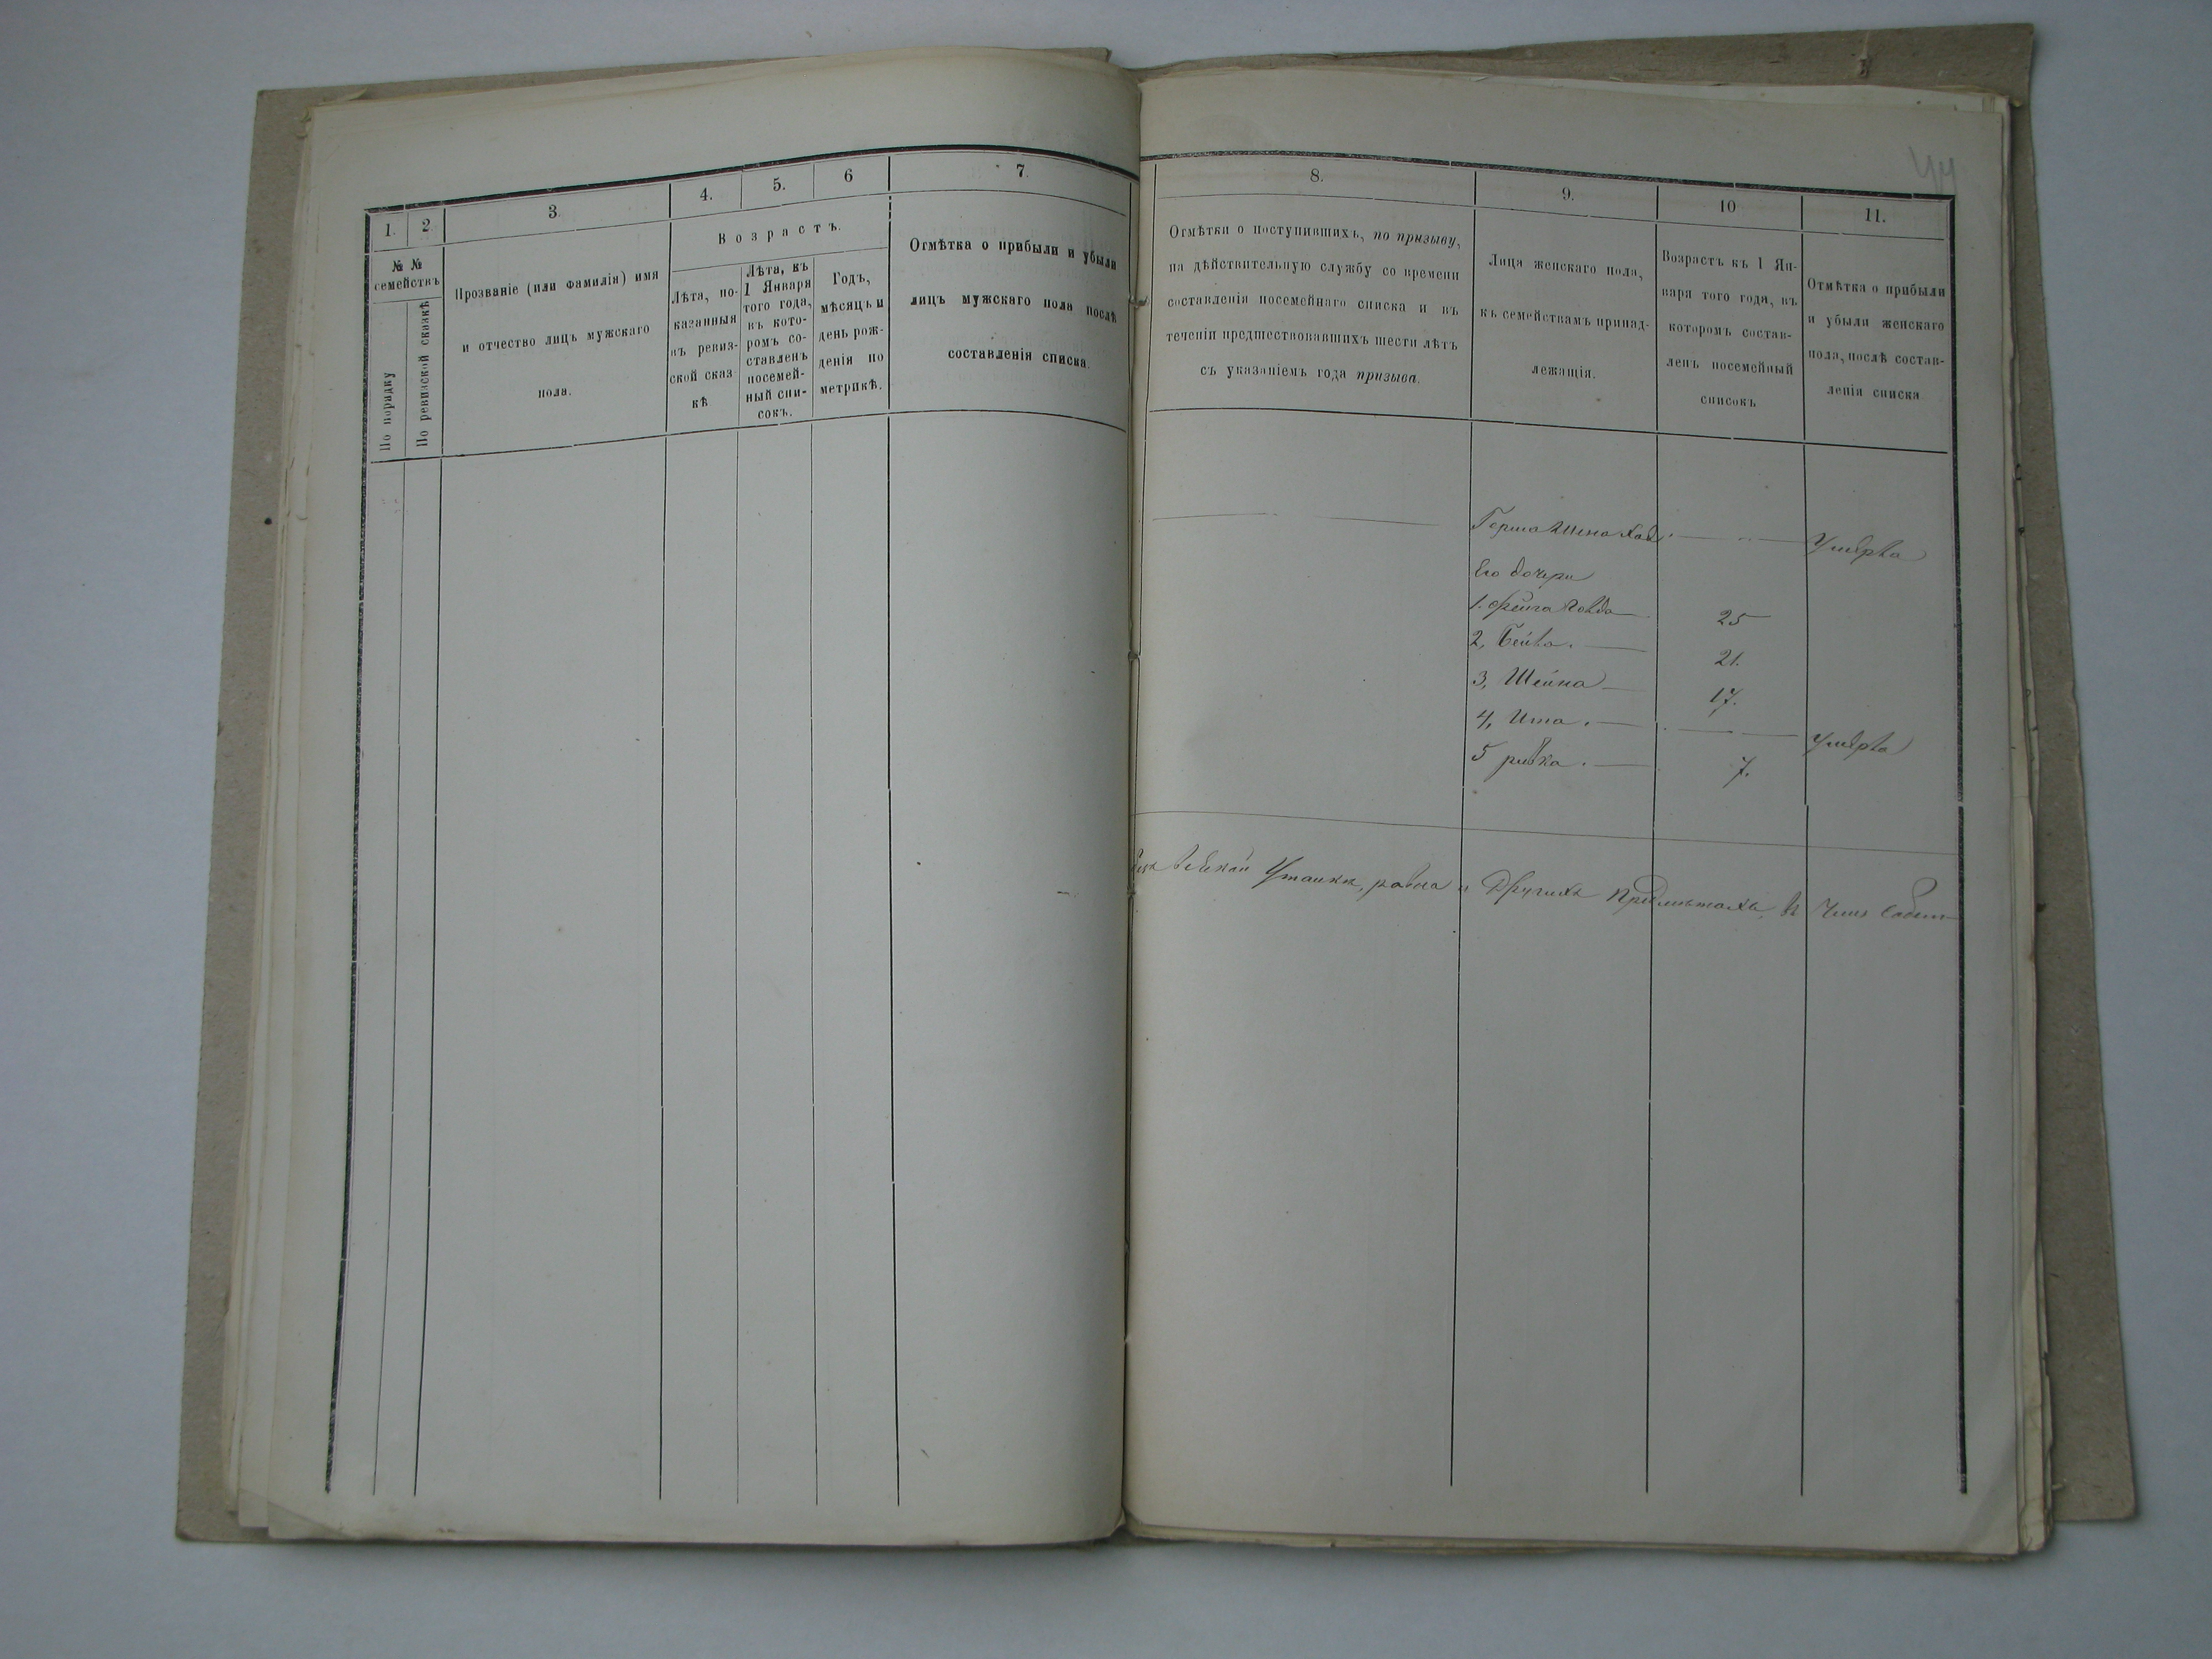 44
1. 2. 3. 4. 5. 6 7.
№ № семействъ
По порядку
По ревизской сказкѣ
Прозваніе (или Фамилія) имя
и отчество лицъ мужскаго
пола.
Возрастъ.
Лѣта, по-
казанныя
въ ревиз-
ской сказ
кѣ
Лѣта, къ
1 Января
того года,
въ кото-
ромъ со-
ставленъ
посемей-
ный спи-
сокъ.
Годъ,
мѣсяцъ и
день рож-
денія по
метрикѣ.
Отмѣтка о прибыли и убыли
лицъ мужскаго пола послѣ
составленія списка.
8. 9. 10 11.
Отмѣтки о поступившихъ, по призыву,
на дѣйствительную службу со времени
составленія посемейнаго списка и въ
теченіи предшествовавшихъ шести лѣтъ
съ указаніемъ года призыва.
Лица женскаго пола,
къ семействамъ принад-
лежащія.
Возрастъ къ 1 Ян-
варя того года, въ
которомъ состав-
ленъ посемейный
списокъ
Отмѣтка о прибыли
и убыли женскаго
пола, послѣ состав-
ленія списка
Умерла
Его дочери
1. Фейга 25
2, Бейла. 21.
3, Шейна 17.
4, Ита. Умерла
5 ривка. 7.
всякой Утайки, равно и Другихъ Предметахъ, въ